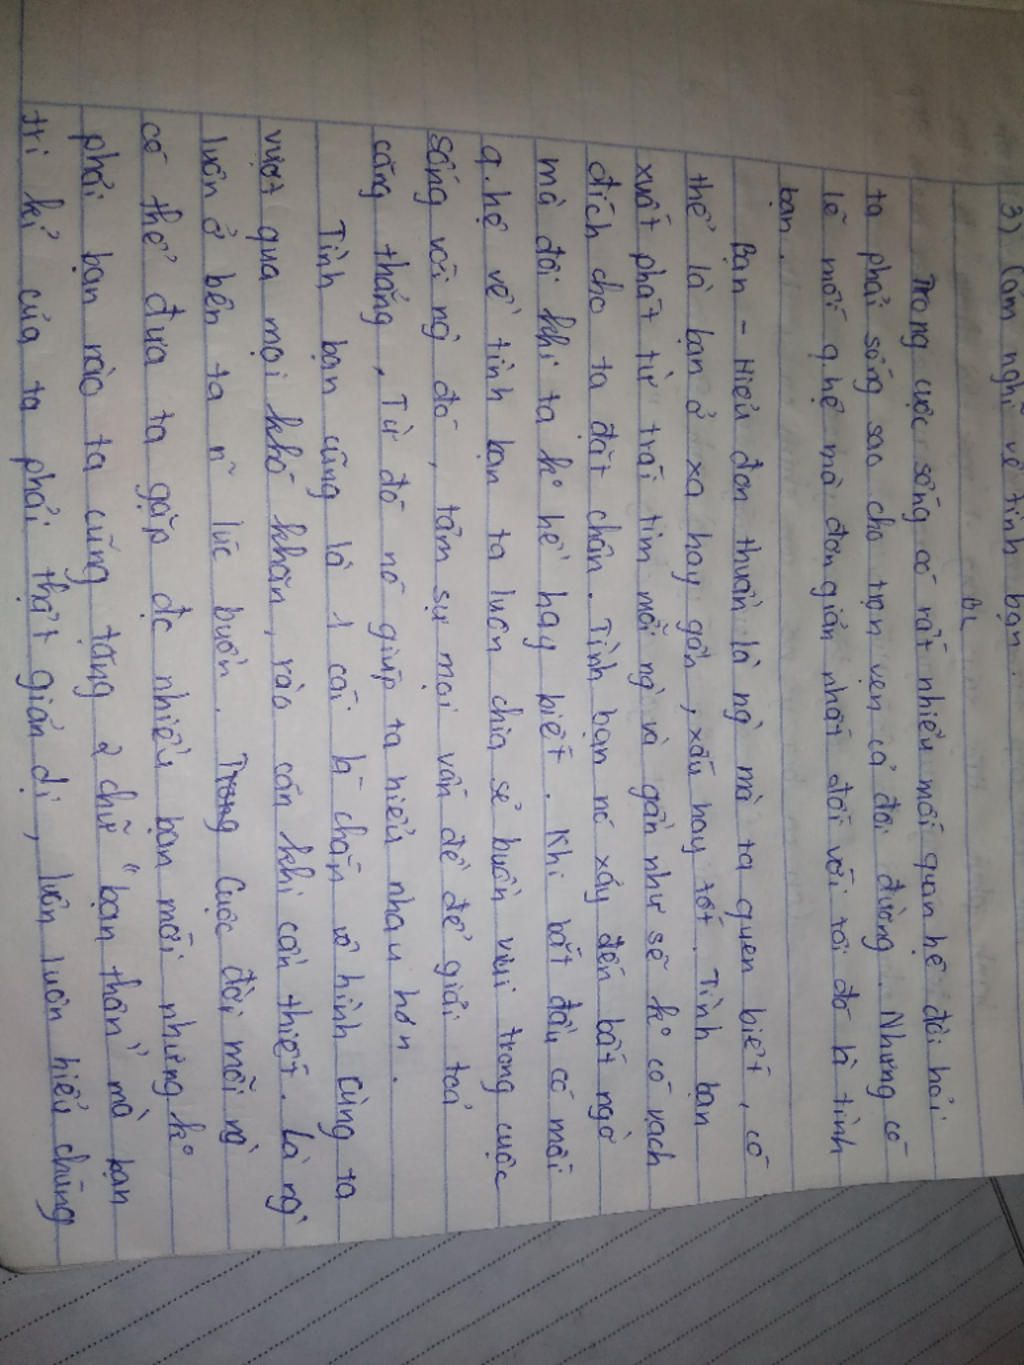 3) Cảm nghĩ về tình bạn.
BL
Trong cuộc sống có rất nhiều mối quan hệ đòi hỏi
ta phải sống sao cho trọn vẹn cả đôi đường. Nhưng có
lẽ mối q.hệ mà đơn giản nhất đối với tôi đó là tình
bạn.
Bạn - Hiểu đơn thuần là ng` mà ta quen biết, có
thể là bạn ở xa hay gần, xấu hay tốt. Tình bạn
xuất phát từ trái tim mỗi ng` và gần như sẽ ko có vạch
đích cho ta đặt chân. Tình bạn nó xảy đến bất ngờ
mà đôi khi ta ko hề hay biết. Khi bắt đầu có mối
q.hệ về tình bạn ta luôn chia sẻ buồn vui trong cuộc
sống với ng` đó, tâm sự mọi vấn đề để giải toả
căng thẳng. Từ đó nó giúp ta hiểu nhau hơn.
Tình bạn cũng là 1 cái chắn vô hình cùng ta
vượt qua mọi khó khăn, rào cản khi cần thiết. Là ng`
luôn ở bên ta lúc buồn. Trong cuộc đời mỗi ng`
có thể đưa ta gặp đc nhiều bạn mới nhưng ko
phải bạn nào ta cũng tặng 2 chữ "bạn thân" mà bạn
tri kỉ của ta phải thật giản dị, luôn luôn hiểu chúng